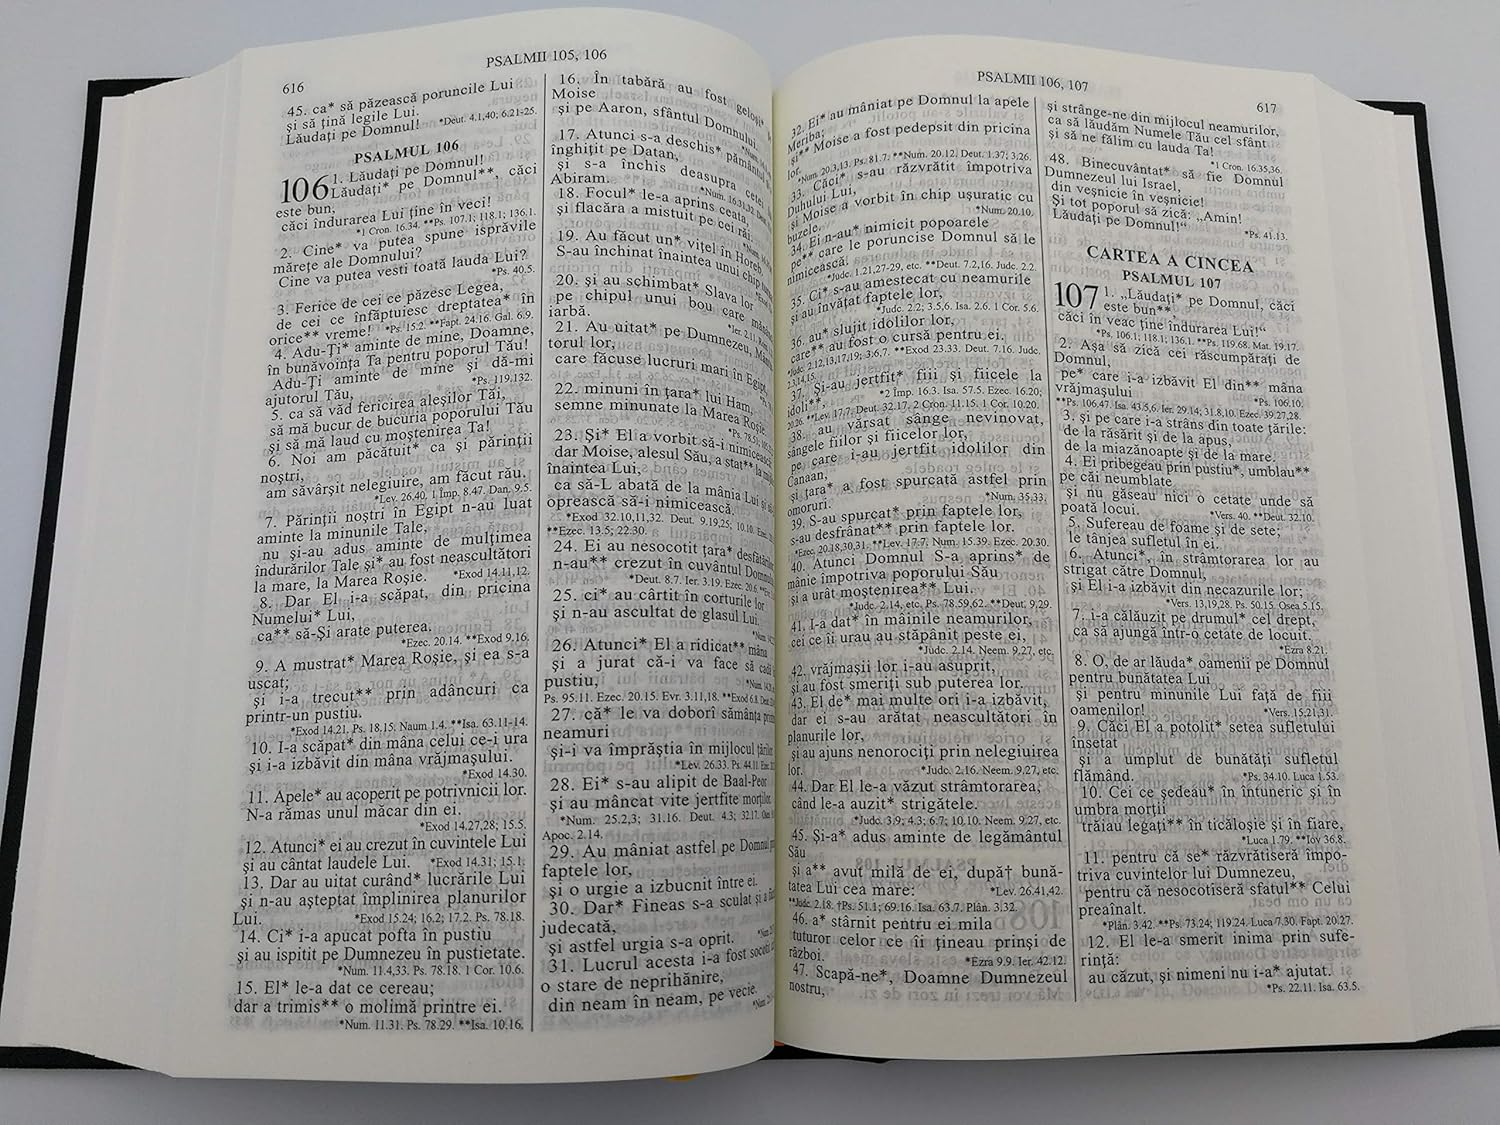 616
PSALMII 105, 106
45. ca* să păzească poruncile Lui
şi să ţină legile Lui.
Lăudaţi pe Domnul! *Deut. 4.1,40; 6.21-25.
PSALMUL 106
106 1. Lăudaţi pe Domnul!
Lăudaţi* pe Domnul**, căci
este bun,
căci îndurarea Lui ţine în veci!
*1 Cron. 16.34. **Ps. 107.1; 118.1; 136.1.
2. Cine* va putea spune isprăvile
măreţe ale Domnului?
Cine va putea vesti toată lauda Lui?
*Ps. 40.5.
3. Ferice de cei ce păzesc Legea,
de cei ce înfăptuiesc dreptatea* în
orice** vreme! *Ps. 15.2. **Fapt. 24.16. Gal. 6.9.
4. Adu-Ţi* aminte de mine, Doamne,
în bunăvoinţa Ta pentru poporul Tău!
Adu-Ţi aminte de mine şi dă-mi
ajutorul Tău, *Ps. 119.132.
5. ca să văd fericirea aleşilor Tăi,
să mă bucur de bucuria poporului Tău
şi să mă laud cu moştenirea Ta!
6. Noi am păcătuit* ca şi părinţii
noştri,
am săvârşit nelegiuire, am făcut rău.
*Lev. 26.40. 1 Împ. 8.47. Dan. 9.5.
7. Părinţii noştri în Egipt n-au luat
aminte la minunile Tale,
nu şi-au adus aminte de mulţimea
îndurărilor Tale şi* au fost neascultători
la mare, la Marea Roşie. *Exod 14.11,12.
8. Dar El i-a scăpat, din pricina
Numelui* Lui,
ca** să-Şi arate puterea.
*Ezec. 20.14. **Exod 9.16.
9. A mustrat* Marea Roşie, şi ea s-a
uscat;
şi i-a trecut** prin adâncuri ca
printr-un pustiu.
*Exod 14.21. Ps. 18.15. Naum 1.4. **Isa. 63.11-14.
10. I-a scăpat* din mâna celui ce-i ura
şi i-a izbăvit din mâna vrăjmaşului.
*Exod 14.30.
11. Apele* au acoperit pe potrivnicii lor.
N-a rămas unul măcar din ei.
*Exod 14.27,28; 15.5.
12. Atunci* ei au crezut în cuvintele Lui
şi au cântat laudele Lui. *Exod 14.31; 15.1.
13. Dar au uitat curând* lucrările Lui
şi n-au aşteptat împlinirea planurilor
Lui. *Exod 15.24; 16.2; 17.2. Ps. 78.18.
14. Ci* i-a apucat pofta în pustiu
şi au ispitit pe Dumnezeu în pustietate.
*Num. 11.4,33. Ps. 78.18. 1 Cor. 10.6.
15. El* le-a dat ce cereau;
dar a trimis** o molimă printre ei.
*Num. 11.31. Ps. 78.29. **Isa. 10.16.
16. În tabără au fost geloşi*
Moise
şi pe Aaron, sfântul Domnului.
17. Atunci s-a deschis* pământul
înghiţit pe Datan,
şi s-a închis deasupra cetei
Abiram. *Num. 16.31,32.
18. Focul* le-a aprins ceata,
şi flacăra a mistuit pe cei răi.
19. Au făcut un* viţel în Horeb
S-au închinat înaintea unui chip
20. şi au schimbat* Slava lor
pe chipul unui bou care
iarbă. *Ier. 2.11.
21. Au uitat* pe Dumnezeu,
torul lor,
care făcuse lucruri mari în Egipt,
22. minuni în ţara* lui Ham,
semne minunate la Marea Roşie.
23. Şi* El a vorbit să-i nimicească
dar Moise, alesul Său, a stat** la
înaintea Lui,
ca să-L abată de la mânia Lui şi
oprească să-i nimicească.
*Exod 32.10,11,32. Deut. 9.19,25; 10.10.
**Ezec. 13.5; 22.30.
24. Ei au nesocotit ţara*
n-au** crezut în cuvântul
*Deut. 8.7. Ier. 3.19. Ezec. 20.6.
25. ci* au cârtit în corturile lor
şi n-au ascultat de glasul Lui.
26. Atunci* El a ridicat** mâna
şi a jurat că-i va face să cadă
pustiu,
Ps. 95.11. Ezec. 20.15. Evr. 3.11,18. **Exod 6.8.
27. că* le va doborî sămânţa
neamuri
şi-i va împrăştia în mijlocul ţărilor
*Lev. 26.33. Ps. 44.11.
28. Ei* s-au alipit de Baal-Peor
şi au mâncat vite jertfite morţilor
*Num. 25.2,3; 31.16. Deut. 4.3; 32.17.
Apoc. 2.14.
29. Au mâniat astfel pe Domnul
faptele lor,
şi o urgie a izbucnit între ei.
30. Dar* Fineas s-a sculat şi a
judecată,
şi astfel urgia s-a oprit.
31. Lucrul acesta i-a fost
o stare de neprihănire,
din neam în neam, pe vecie.
PSALMII 106, 107
617
32. Ei* au mâniat pe Domnul la apele
Meriba;
şi** Moise a fost pedepsit din pricina
lor,
*Num. 20.3,13. Ps. 81.7. **Num. 20.12. Deut. 1.37; 3.26.
33. Căci* s-au răzvrătit împotriva
Duhului Lui,
şi Moise a vorbit în chip uşuratic cu
buzele. *Num. 20.10.
34. Ei n-au* nimicit popoarele
pe** care le poruncise Domnul să le
nimicească. *Judc. 1.21,27-29, etc. **Deut. 7.2,16. Judc. 2.2.
35. Ci* s-au amestecat cu neamurile
şi au învăţat faptele lor,
*Judc. 2.2; 3.5,6. Isa. 2.6. 1 Cor. 5.6.
36. au* slujit idolilor lor,
care** au fost o cursă pentru ei.
*Judc. 2.12,13,17,19; 3.6,7. **Exod 23.33. Deut. 7.16. Judc.
2.3,14,15.
37. Şi-au jertfit* fiii şi fiicele la
idoli**, *2 Împ. 16.3. Isa. 57.5. Ezec. 16.20;
20.26. **Lev. 17.7. Deut. 32.17. 2 Cron. 11.15. 1 Cor. 10.20.
38. au vărsat sânge nevinovat,
sângele fiilor şi fiicelor lor,
pe care i-au jertfit idolilor din
Canaan,
şi ţara* a fost spurcată astfel prin
omoruri. *Num. 35.33.
39. S-au spurcat* prin faptele lor,
s-au desfrânat** prin faptele lor.
*Ezec. 20.18,30,31. **Lev. 17.7. Num. 15.39. Ezec. 20.30.
40. Atunci Domnul S-a aprins* de
mânie împotriva poporului Său
şi a urât moştenirea** Lui.
*Judc. 2.14, etc. Ps. 78.59,62. **Deut. 9.29.
41. I-a dat* în mâinile neamurilor,
cei ce îi urau au stăpânit peste ei,
*Judc. 2.14. Neem. 9.27, etc.
42. vrăjmaşii lor i-au asuprit,
şi au fost smeriţi sub puterea lor.
43. El de* mai multe ori i-a izbăvit,
dar ei s-au arătat neascultători în
planurile lor,
şi au ajuns nenorociţi prin nelegiuirea
lor. *Judc. 2.16. Neem. 9.27, etc.
44. Dar El le-a văzut strâmtorarea,
când le-a auzit* strigătele.
*Judc. 3.9; 4.3; 6.7; 10.10. Neem. 9.27, etc.
45. Şi-a* adus aminte de legământul
Său
şi a** avut milă de ei, după† bună-
tatea Lui cea mare: *Lev. 26.41,42.
**Judc. 2.18. †Ps. 51.1; 69.16. Isa. 63.7. Plân. 3.32.
46. a* stârnit pentru ei mila
tuturor celor ce îi ţineau prinşi de
război. *Ezra 9.9. Ier. 42.12.
47. Scapă-ne*, Doamne Dumnezeul
nostru,
şi strânge-ne din mijlocul neamurilor,
ca să lăudăm Numele Tău cel sfânt
şi să ne fălim cu lauda Ta!
*1 Cron. 16.35,36.
48. Binecuvântat* să fie Domnul
Dumnezeul lui Israel,
din veşnicie în veşnicie!
Şi tot poporul să zică: „Amin!
Lăudaţi pe Domnul!“
*Ps. 41.13.
CARTEA A CINCEA
PSALMUL 107
107 1. „Lăudaţi* pe Domnul, căci
este bun**
căci în veac ţine îndurarea Lui!“
*Ps. 106.1; 118.1; 136.1. **Ps. 119.68. Mat. 19.17.
2. Aşa să zică cei răscumpăraţi de
Domnul,
pe* care i-a izbăvit El din** mâna
vrăjmaşului *Ps. 106.10.
**Ps. 106.47. Isa. 43.5,6. Ier. 29.14; 31.8,10. Ezec. 39.27,28.
3. şi pe care i-a strâns din toate ţările:
de la răsărit şi de la apus,
de la miazănoapte şi de la mare.
4. Ei pribegeau prin pustiu*, umblau**
pe căi neumblate
şi nu găseau nici o cetate unde să
poată locui. *Vers. 40. **Deut. 32.10.
5. Sufereau de foame şi de sete;
le tânjea sufletul în ei.
6. Atunci*, în strâmtorarea lor au
strigat către Domnul,
şi El i-a izbăvit din necazurile lor;
*Vers. 13,19,28. Ps. 50.15. Osea 5.15.
7. i-a călăuzit pe drumul* cel drept,
ca să ajungă într-o cetate de locuit.
*Ezra 8.21.
8. O, de ar lăuda* oamenii pe Domnul
pentru bunătatea Lui
şi pentru minunile Lui faţă de fiii
oamenilor! *Vers. 15,21,31.
9. Căci El a potolit* setea sufletului
însetat
şi a umplut de bunătăţi sufletul
flămând. *Ps. 34.10. Luca 1.53.
10. Cei ce şedeau* în întuneric şi în
umbra morţii
trăiau legaţi** în ticăloşie şi în fiare,
*Luca 1.79. **Iov 36.8.
11. pentru că se* răzvrătiseră împo-
triva cuvintelor lui Dumnezeu,
pentru că nesocotiseră sfatul** Celui
preaînalt.
*Plân. 3.42. **Ps. 73.24; 119.24. Luca 7.30. Fapt. 20.27.
12. El le-a smerit inima prin sufe-
rinţă:
au căzut, şi nimeni nu i-a* ajutat.
*Ps. 22.11. Isa. 63.5.